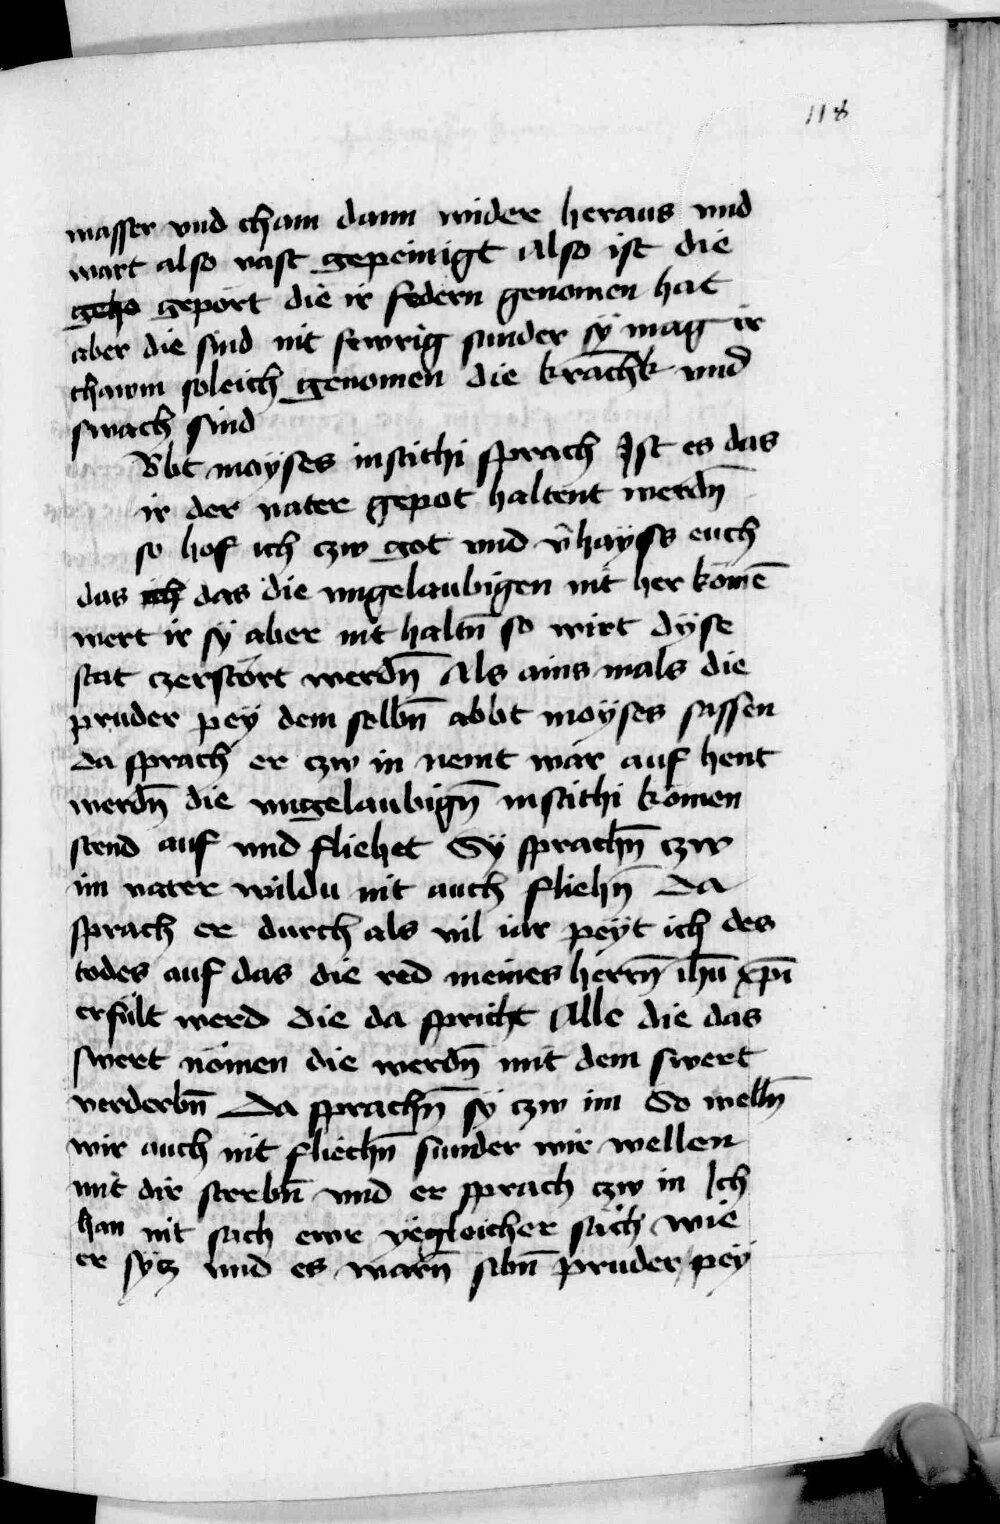 118
wasser vnd cham dann wider heraus vnd
wart also vast gepeinigt Also ist die
gepört die ir federn genomen hat
aber die sind nit fewrig sunder sÿ mag ir
chawm soleich genomen die krachk vnd
swach sind
Bbt moyses instithi sprach Ist es das
ir der vater gepot haltent werdn̄
so hof ich czw got vnd v̄hayss euch
das ich das die vngelaubigen nit her komē
wert ir sÿ aber nit haltn̄ so wirt dÿse
stat czerstört werdn̄ Als ains mals die
pruder peÿ dem selbn̄ abbt moÿses sassen
da sprach er czw in nemt war auf hent
werdn̄ die vngelaubign̄ instithi komen
stend auf vnd fliehet Sÿ sprachn̄ czw
im vater wildu nit auch fliehn̄ Da
sprach er durch als vil iar peÿt ich des
todes auf das die red meines herrn̄ ihū xp̄i
erfült werd die da spricht Alle die das
swert nömen die werdn̄ mit dem swert
verderbn̄ Da sprachn̄ sÿ czw im So welln̄
wir auch nit fliechn̄ sunder wir wellen
mit dir sterbn̄ vnd er sprach czw in Ich
han nit sach ewr yegleicher säch wie
er sÿcz vnd es warn̄ sibn̄ pruder peÿ